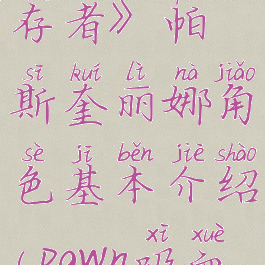 存者》帕
sī kuí lì nà jiǎo
斯奎丽娜角
sè jī běn jiè shào
色基本介绍
xī xuè
(pawn吸血